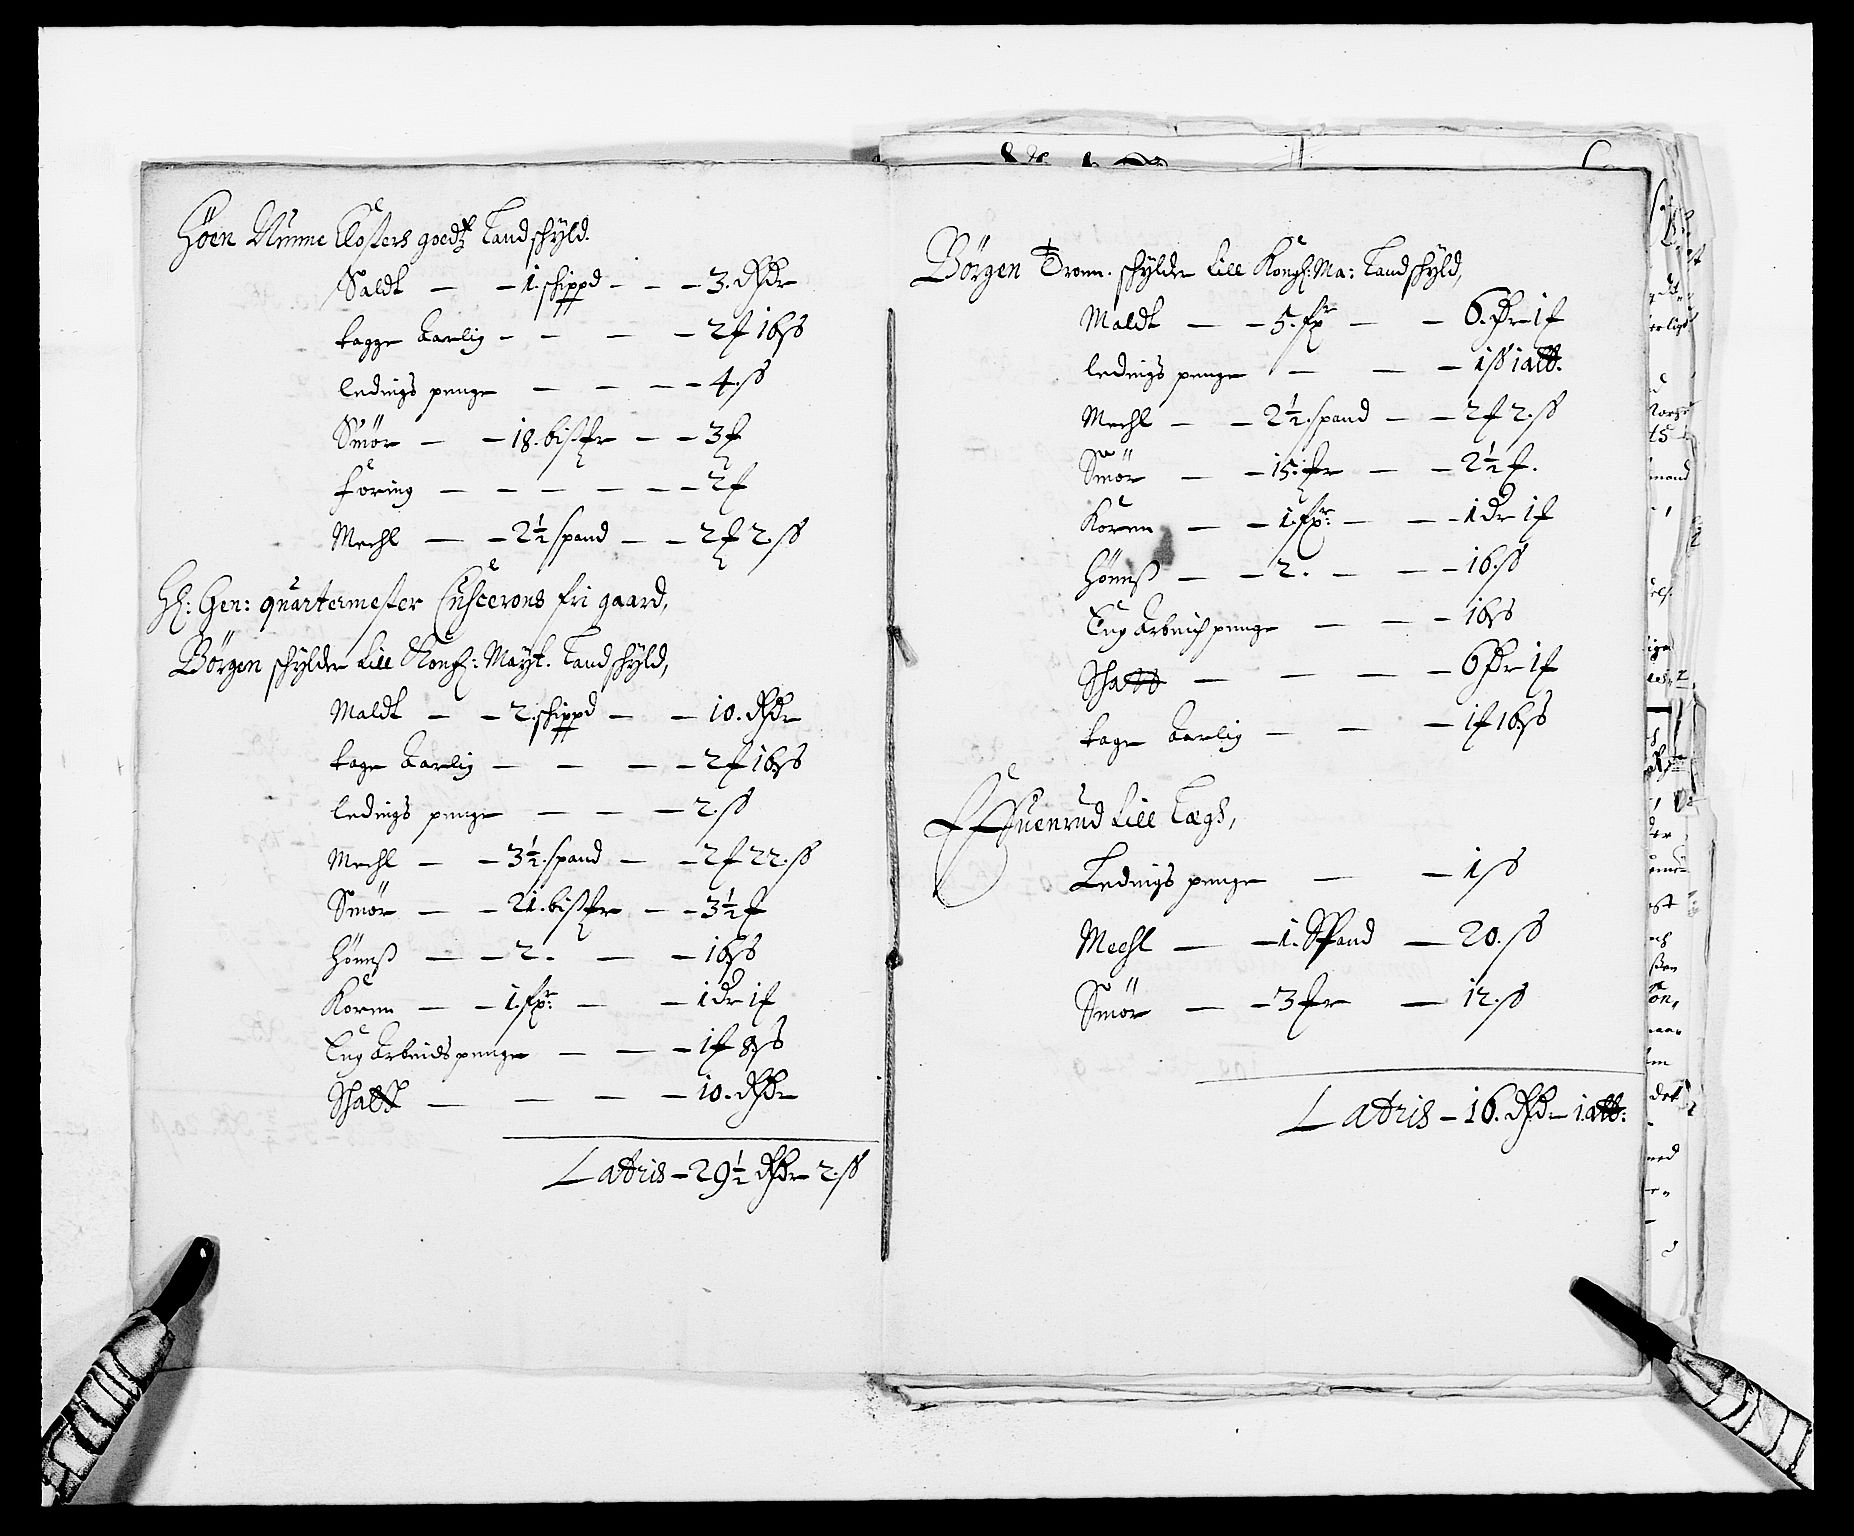 Höen Nunne Closters goedtz Landschyld.
Saldt — — 1. schippd — — — 3. Rdr
tagge Aarlig — — — — 2 f 16 ß
ledings penge — — — — 4. ß
Smör — — 18. bißr — — 3 f
foring — — — — — — 2 f
Mehl — — 2½ spand — — 2 f 2. ß
Hr: Gen: quartermester Cusserons fri gaard,
Börgen schylder till Kongl: Mayt. Landschyld,
Maldt — — 2. schippd — — 10. Rdr
tage Aarlig — — — — 2 f 16 ß
ledings penge — — — — 2. ß
Mehl — — 3½. spand — — 2 f 22. ß
Smör — — 21. bißr — — 3½ f
Hönß — — 2. — — 16 ß
Koren — — 1. fpr: — — 1 dr 1 f
Tug Arbeids penge — — — 1 f 8 ß
Schatt — — — — 10. Rdr
Latris — 29½ Rdr — 2. ß
Börgen Tronn. schylder till Kongl: Ma: Landschyld,
Maldt — — 5. fpr — — 6. dr 1 f
ledings penge — — — 1 ß 1 alb.
Mehl — — 2½. spand — — 2 f 2. ß
Smör — — 15. — — 2½ f.
Koren — — 1. fpr: — — 1 dr 1 f
Hönnß — — 2. — — — 16. ß
Tug Arbeids penge — — — 16 ß
Schatt — — — — 6 dr 1 f
tage Aarlig — — — 1 f 16 ß
Suenrud till Lægs,
Ledings penge — — 1 ß
Mehl — — 1. Spand — 20. ß
Smör — — 3 — 12. ß
Latris — 16. Rdr — 1. alb: